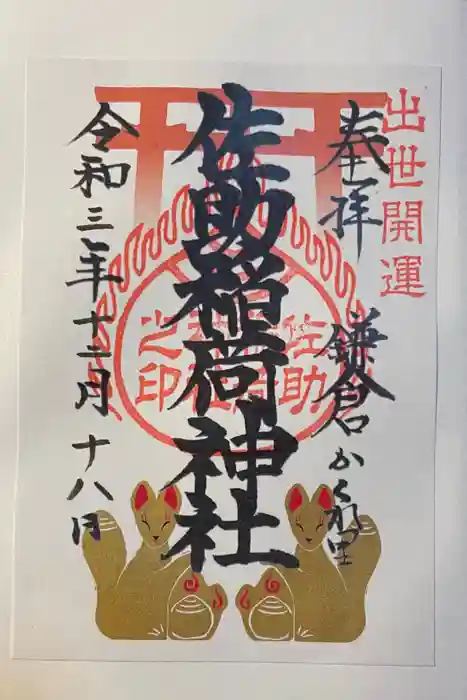 出世開運
奉拝
鎌倉かくれ里
佐助稲荷神社
佐助
稲荷
神社
之印
令和三年十二月十八日